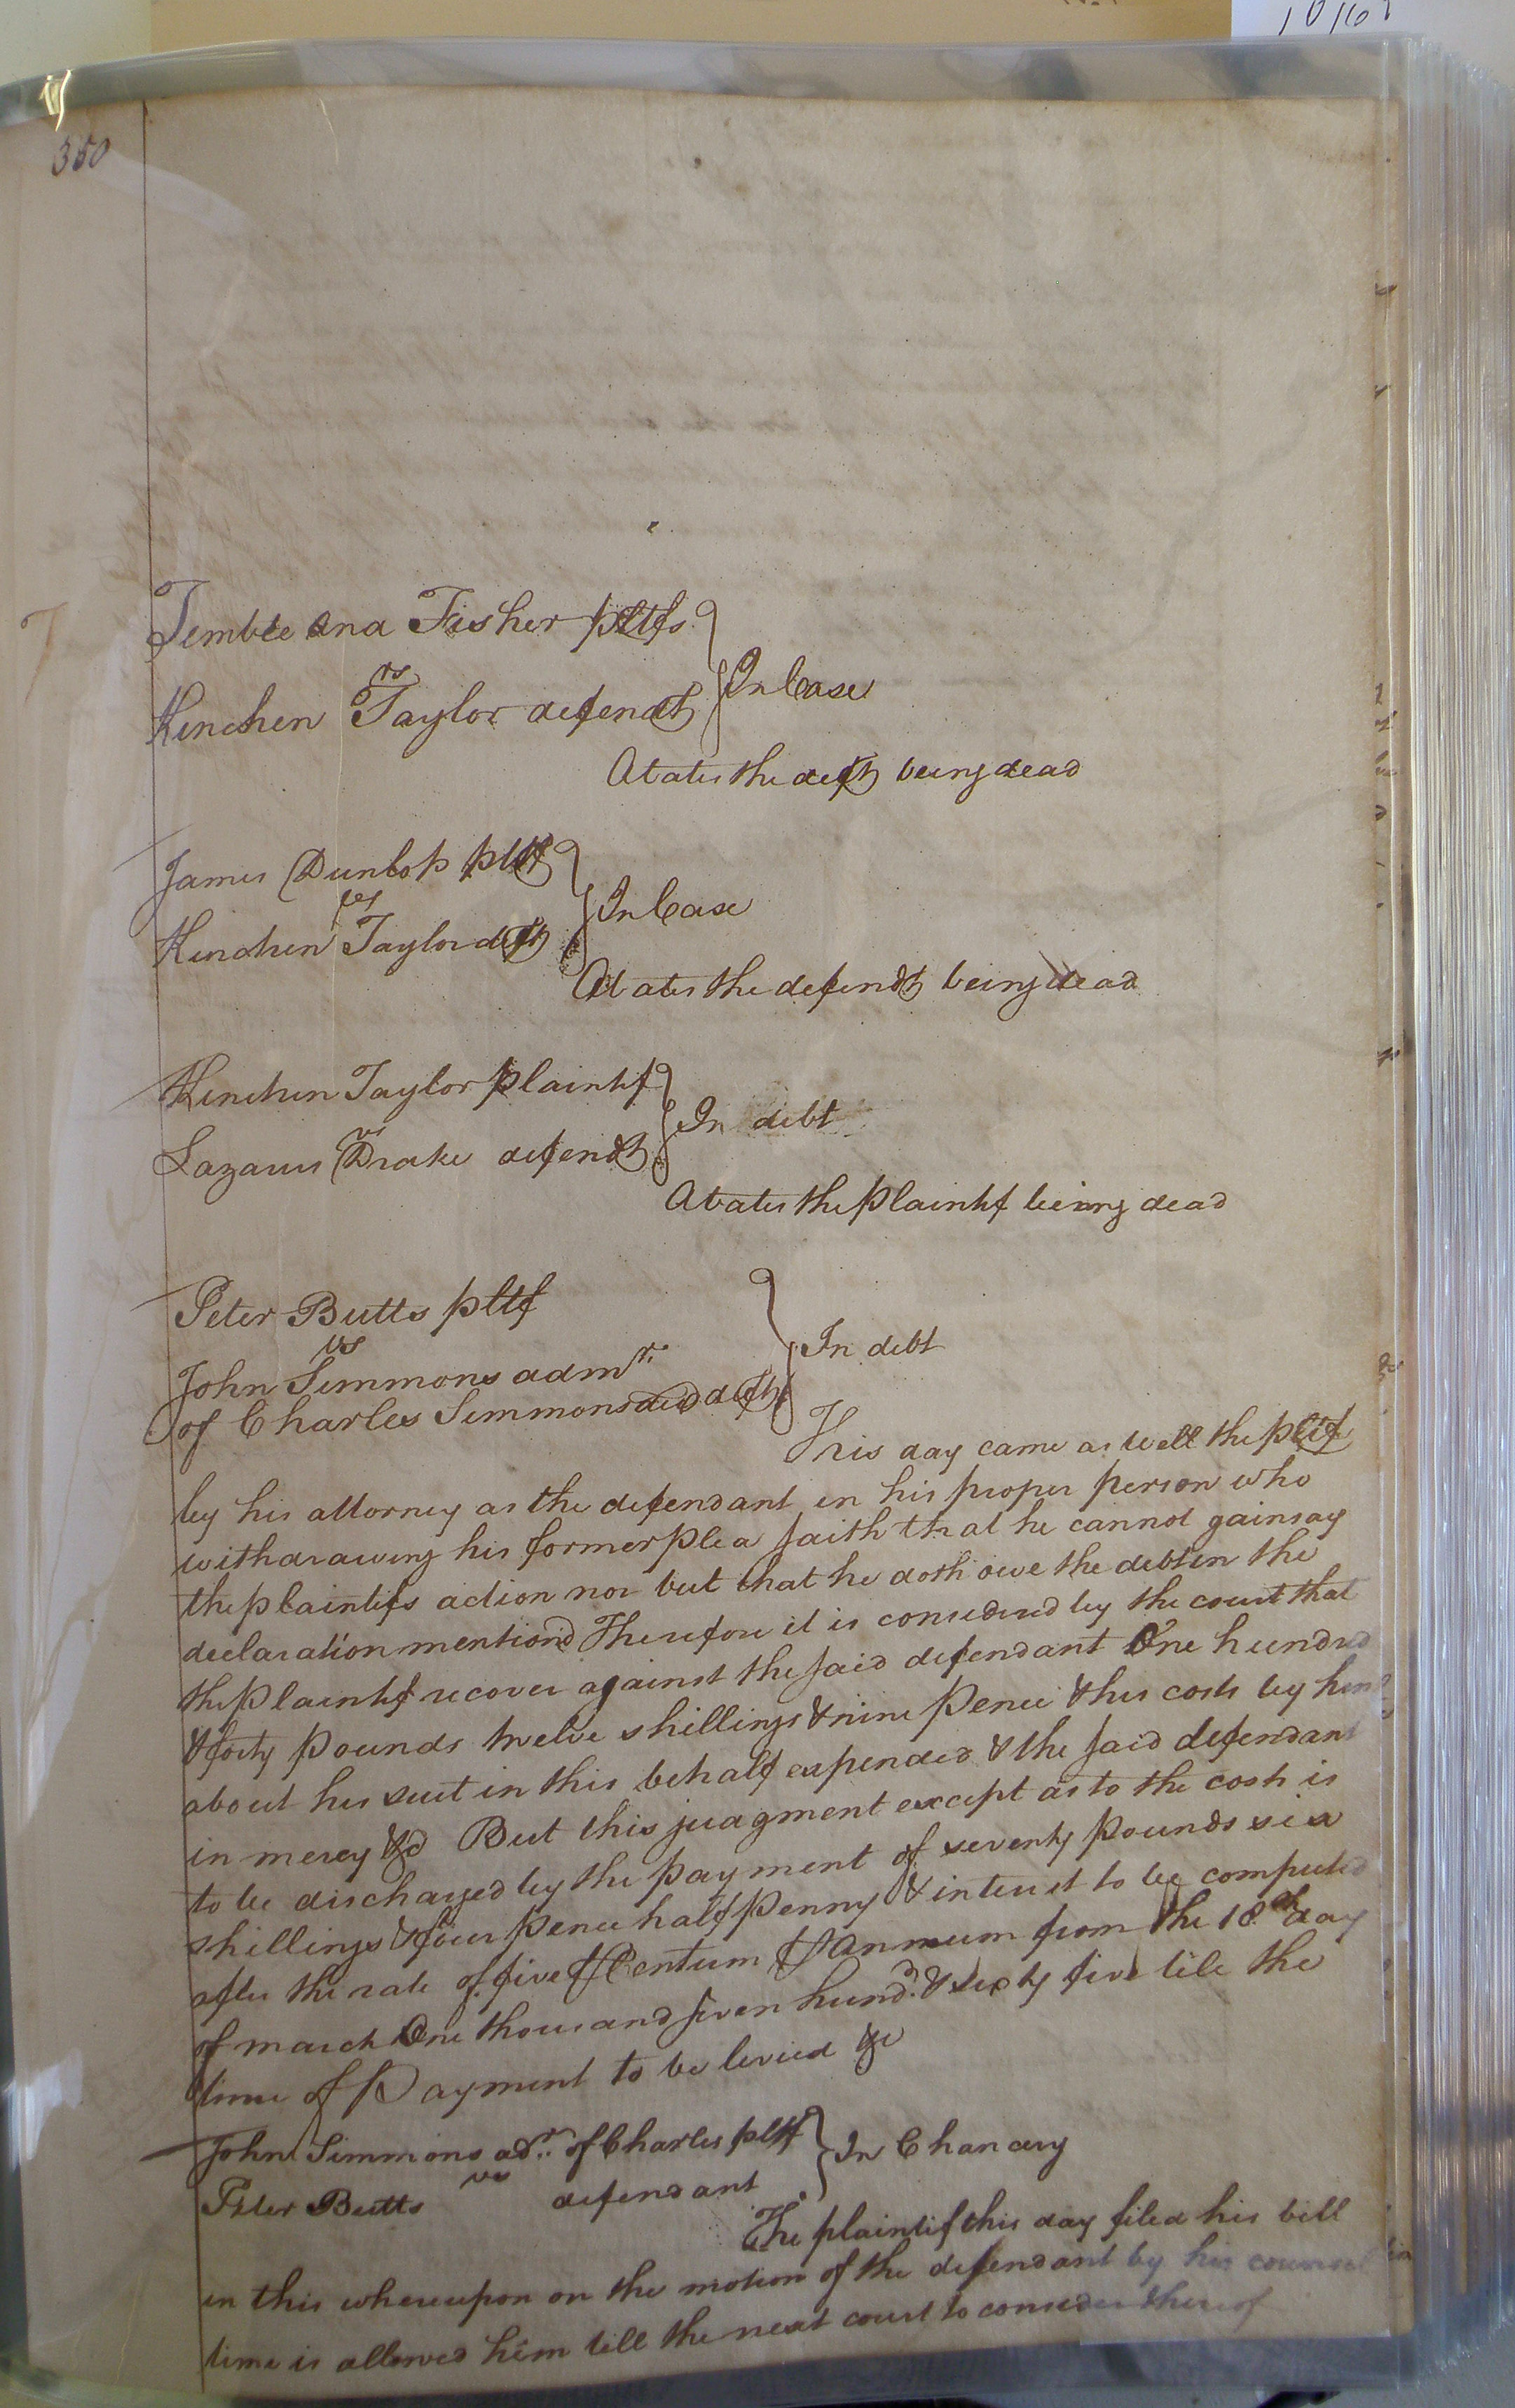 350
Temble and Fisher pltfs
vs
Kinchen Taylor defendt
In Case
Abates the deft being dead
James Dunlop pltf
vs
Kinchen Taylor deft
In Case
Abates the defendt being dead
Kinchen Taylor plaintif
vs
Lazarus Drake defendt
In debt
Abates the plaintif being dead
Peter Butts pltf
vs
John Simmons admr.
of Charles Simmons decd deft
In debt
This day came as well the pltf
by his attorney as the defendant in his proper person who
withdrawing his former plea saith that he cannot gainsay
the plaintifs action nor but that he doth owe the debt in the
declaration mentiond Therefore it is considered by the court that
the plaintif recover against the said defendant One hundred
& forty pounds twelve shillings & nine pence & his costs by him
about his suit in this behalf expended & the said defendant
in mercy &c But this judgment except as to the costs is
to be discharged by the payment of seventy pounds six
shillings & four pence half penny & interest to be computed
after the rate of five ⅌ Centum ⅌ annum from the 18th day
of march One thousand seven hund.d & sixty five till the
time of Payment to be levied &c
John Simmons adr. of Charles pltf
vs
Peter Butts defendant
In Chancery
The plaintif this day filed his bill
in this whereupon on the motion of the defendant by his counsel
time is allowed him till the next court to consider thereof